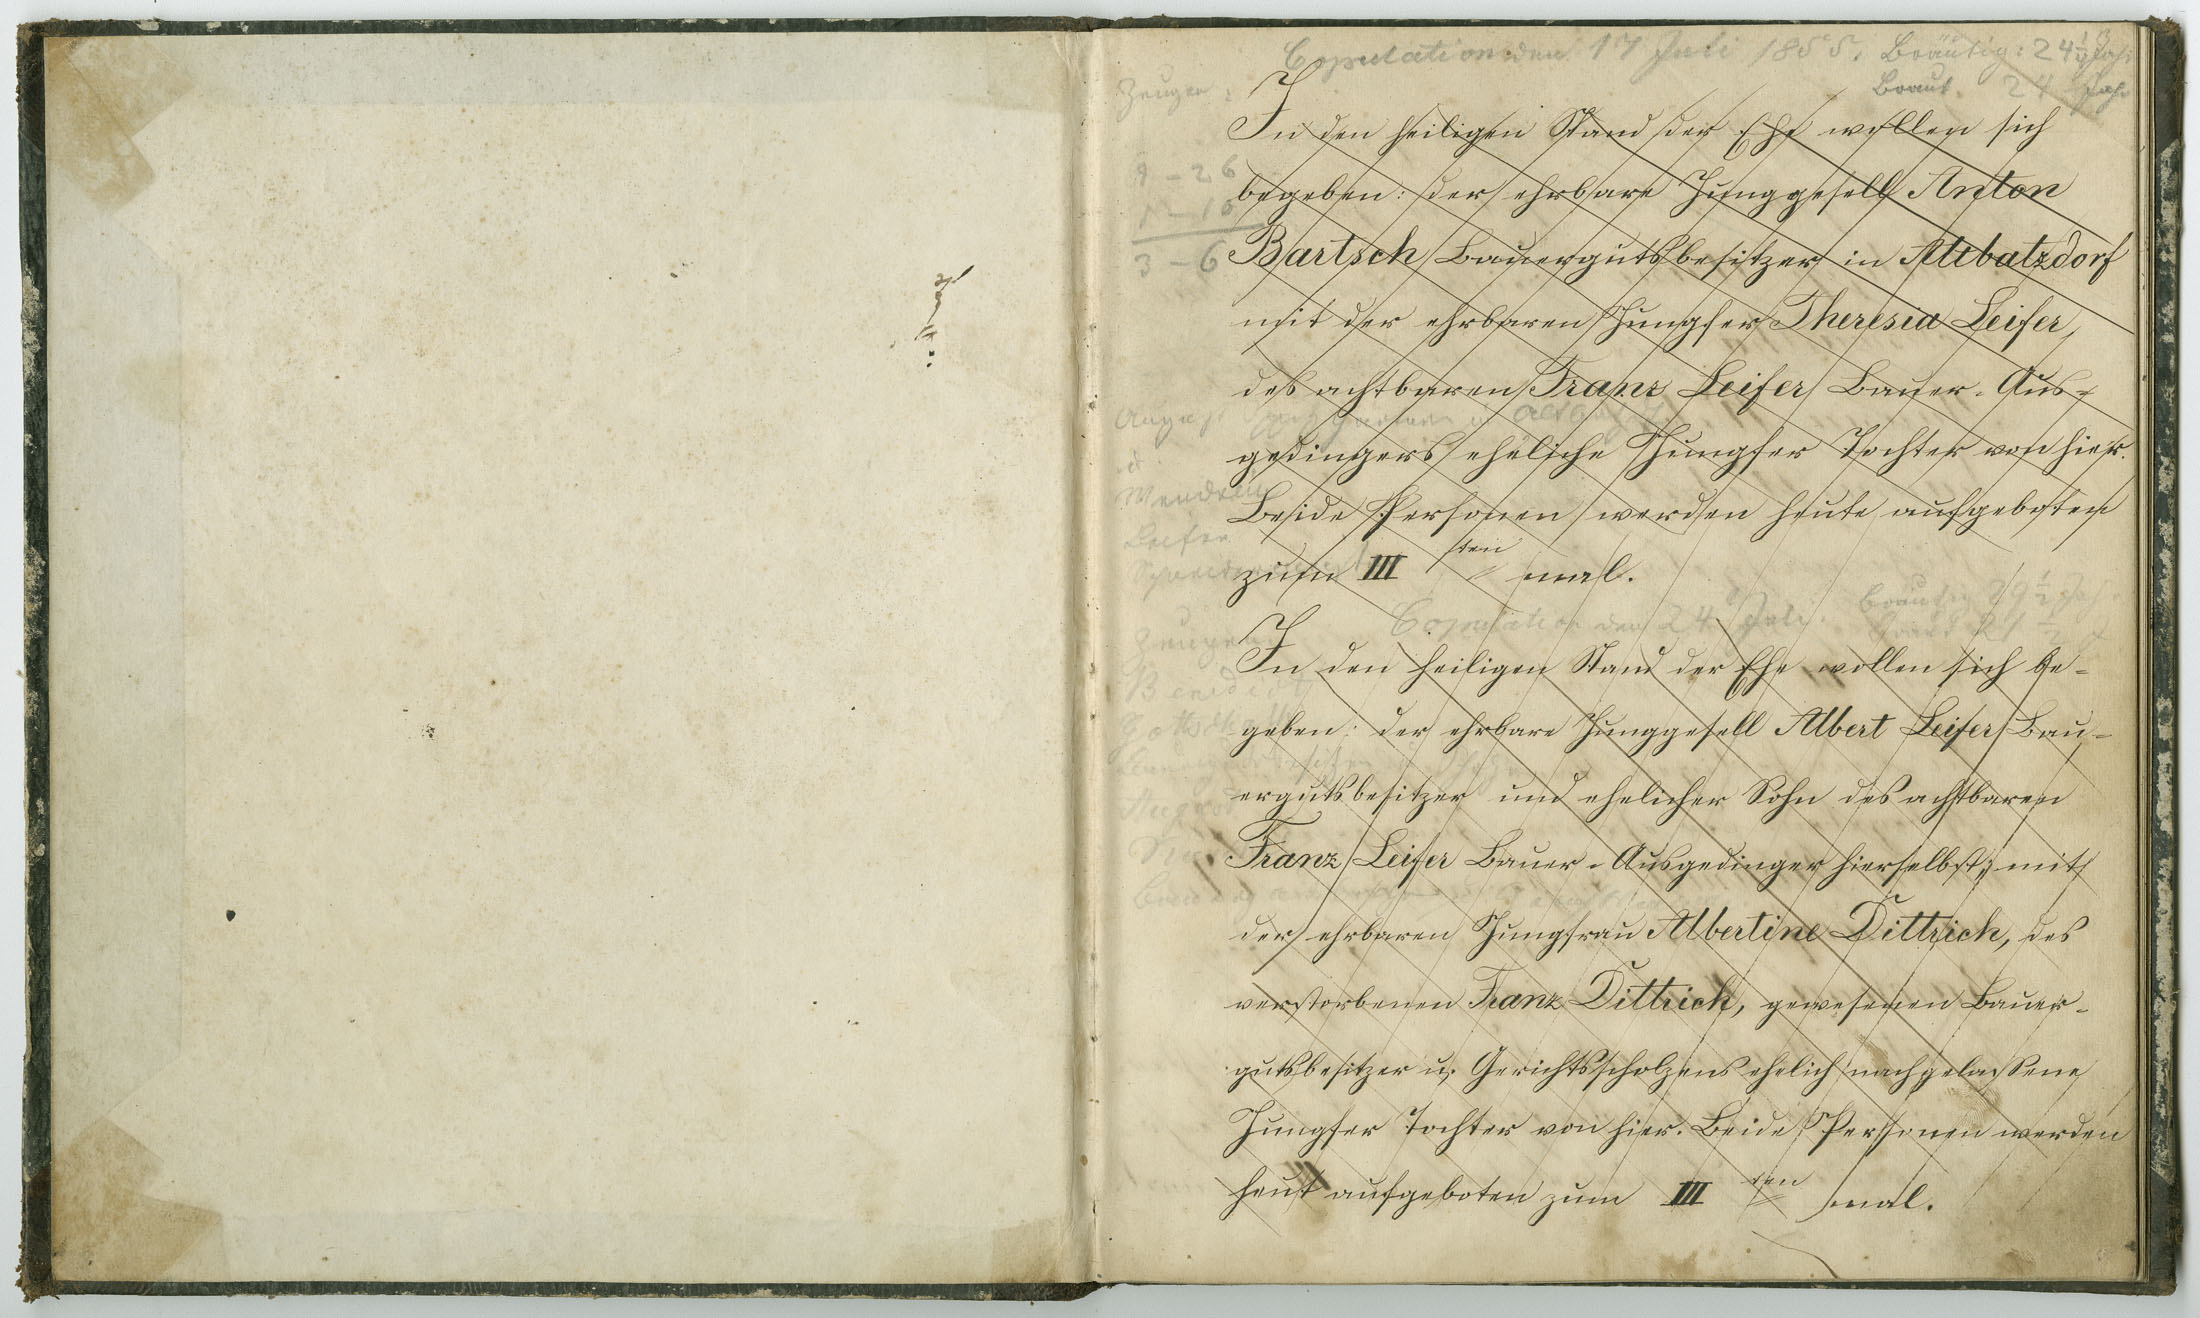 Copulation den 17 Juli 1855. Bräutig: 24 Jahr
Zeugen: Braut. 24 Jahr
In den heiligen Stand der Ehe wollen sich
9 - 26
begeben: der ehrbare Junggesell Anton
3 - 6
Bartsch Bauergutsbesitzer in Altbatzdorf
mit der ehrbaren Jungfer Theresia Leifer,
des achtbaren Franz Leifer Bauer-Aus-
August
gedingers eheliche Jungfer Tochter von hier.
Beide Personen werden heute aufgeboten
Leifer
zum III sten mal.
Copulation den 24 Juli. Bräutig
Zeugen
In den heiligen Stand der Ehe wollen sich be-
Benedict
geben: der ehrbare Junggesell Albert Leifer Bau-
ergutsbesitzer und ehelicher Sohn des achtbaren
Franz Leifer Bauer-Ausgedinger hierselbst, mit
der ehrbaren Jungfrau Albertine Dittrich, des
verstorbenen Franz Dittrich, gewesenen Bauer-
gutsbesitzer u. Gerichtsscholzens ehelich nachgelassene
Jungfer Tochter von hier. Beide Personen werden
heut aufgeboten zum III ten mal.